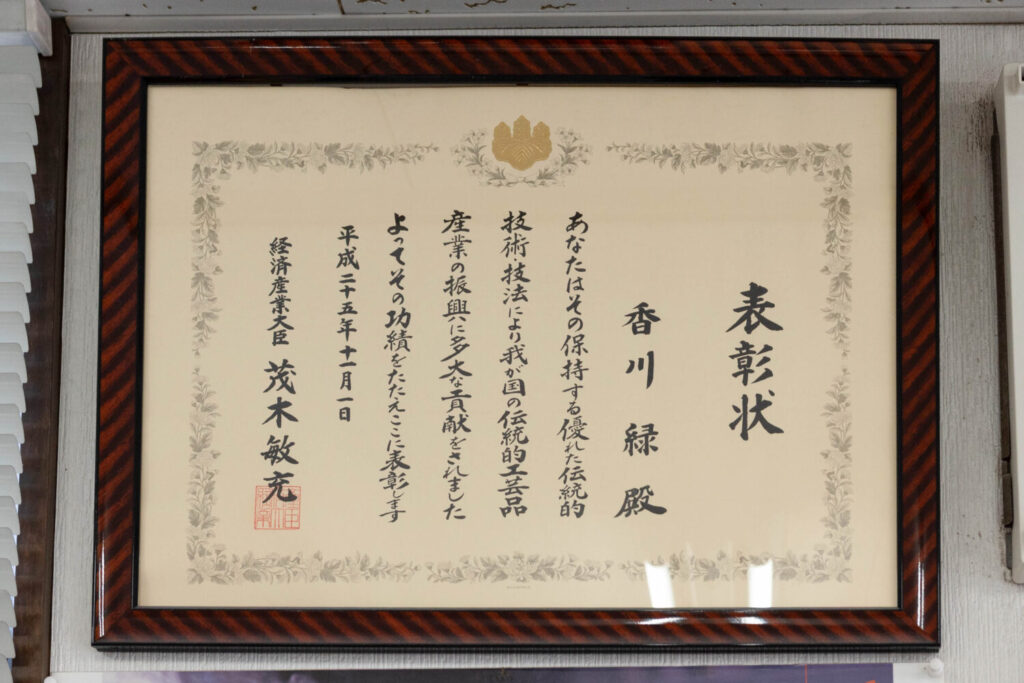 表彰状
香川緑殿
あなたはその保持する優れた伝統的
技術・技法により我が国の伝統的工芸品
産業の振興に多大な貢献をされました
よってその功績をたたえここに表彰します
平成二十五年十一月一日
経済産業大臣 茂木敏充